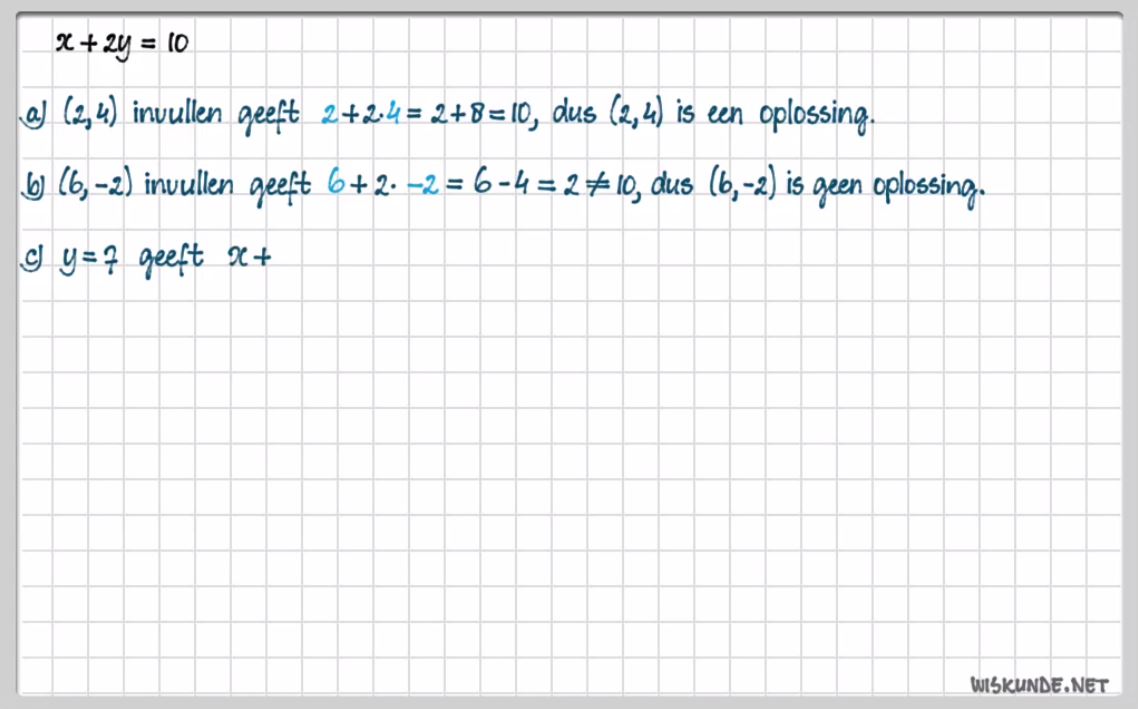 x + 2y = 10
a) (2,4) invullen geeft 2+2·4 = 2+8=10, dus (2,4) is een oplossing.
b) (6,-2) invullen geeft 6+2· -2 = 6-4 = 2 ≠ 10, dus (6,-2) is geen oplossing.
c) y=7 geeft x +
WISKUNDE.NET